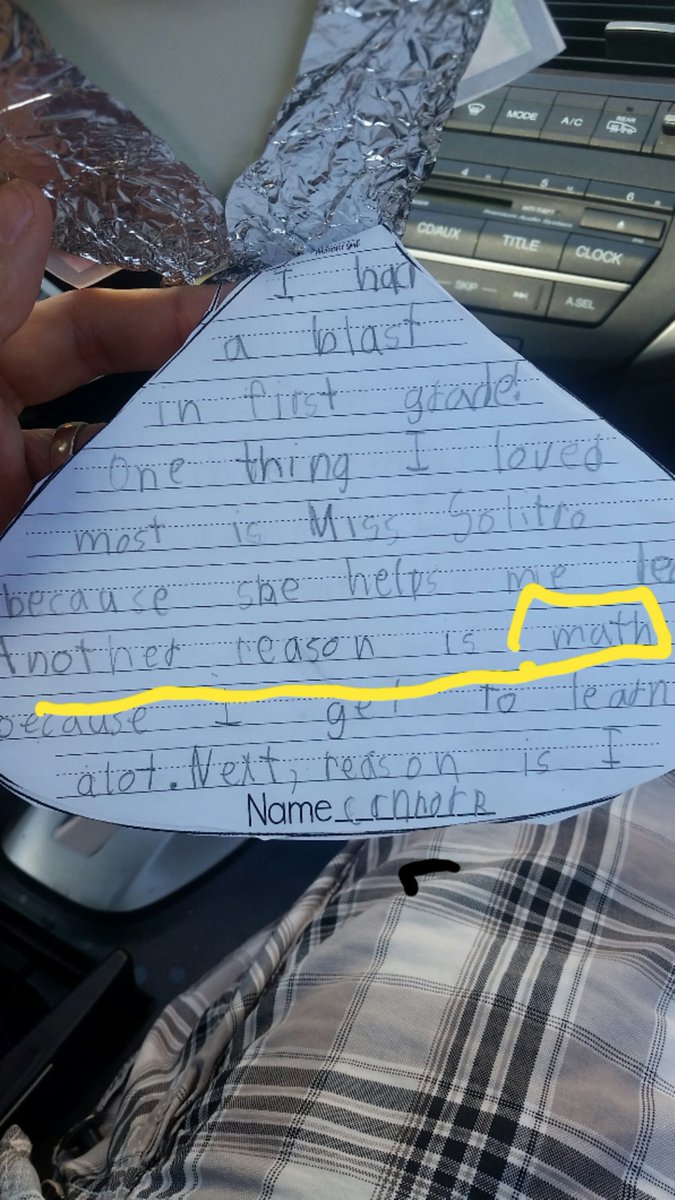 MODE
A/C
REAR
4
5
6
CD/AUX
TITLE
CLOCK
SKIP
A.SEL
I had
a blast
in first grade!
One thing I loved
most is Miss Solitro
because she helps me
Another reason is math
because I get to learn
alot. Next, reason is I
Name